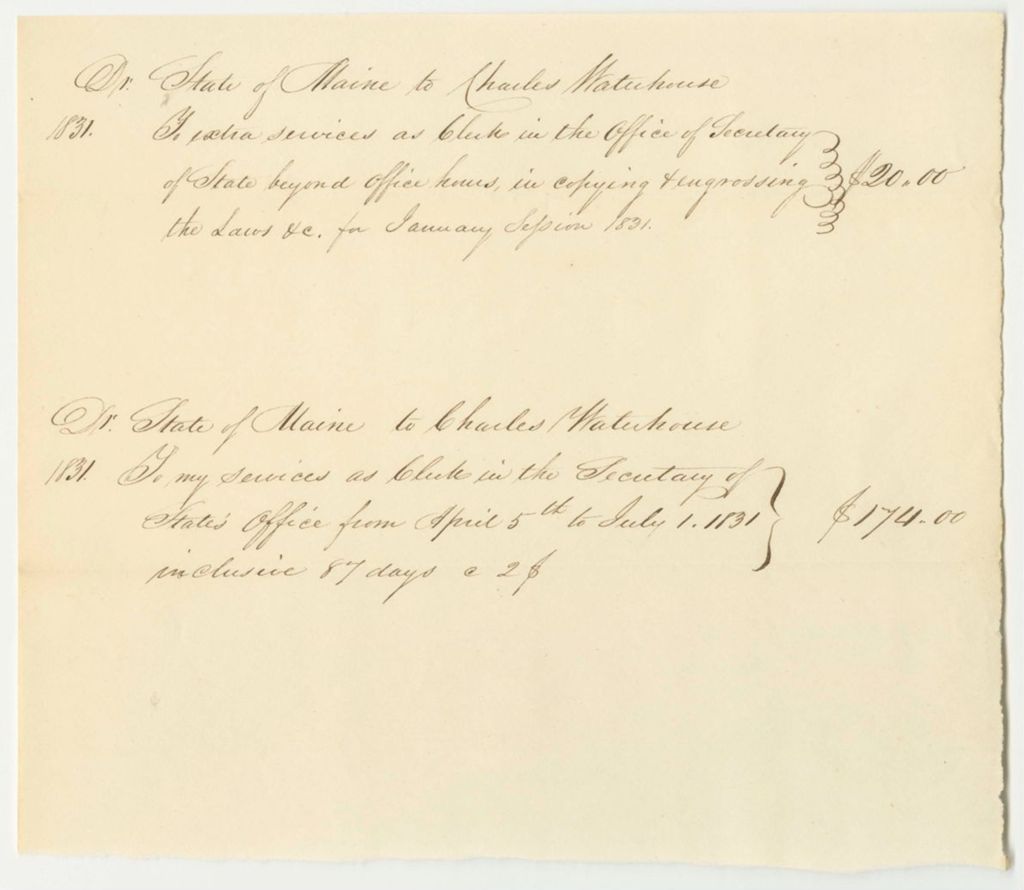 Dr. State of Maine to Charles Waterhouse
1831. To extra services as Clerk in the Office of Secretary
of State beyond Office hours, in copying & engrossing $20.00
the Laws &c. for January Session 1831.
Dr. State of Maine to Charles Waterhouse
1831. To my services as Clerk in the Secretary of
State's Office from April 5th to July 1. 1831 $174.00
inclusive 87 days @ 2$